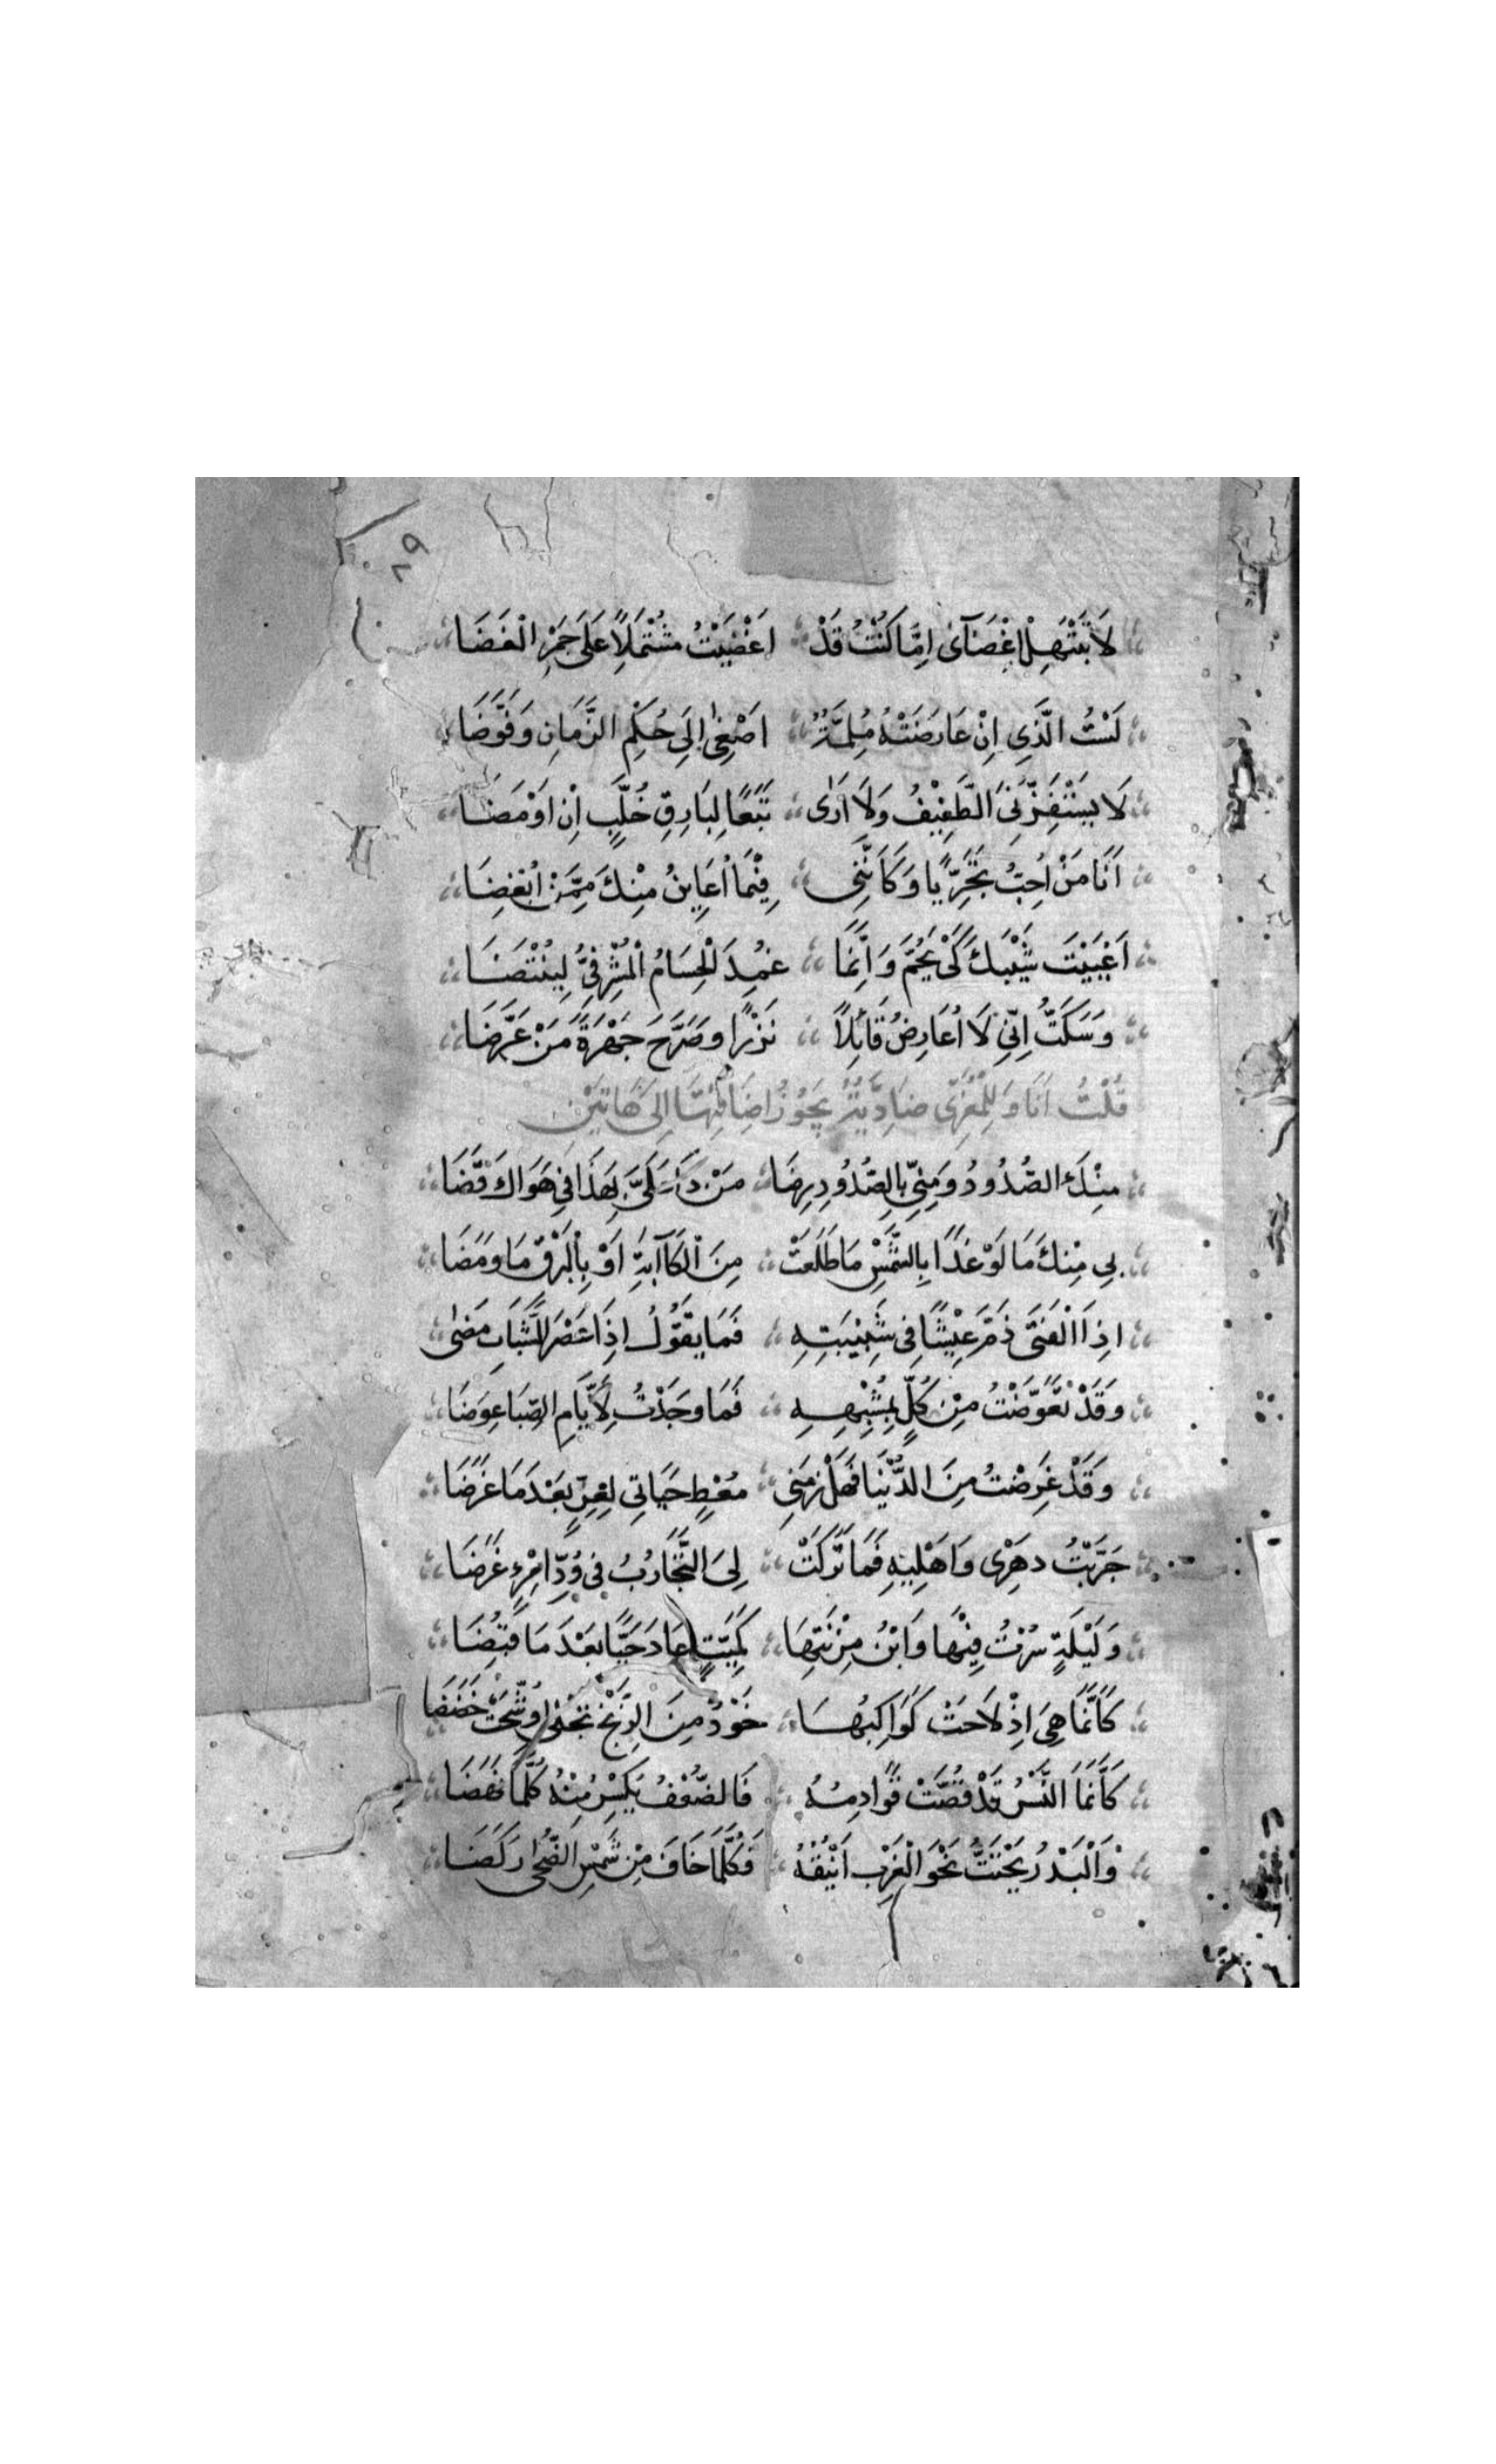 ٨٩
لَا تَبْتَهِلْ اِغْضَآئ اِمَّا كُنْتُ قَدْ اَغْضَيْتُ مُشْتَمِلًا عَلَى جَمْرِ الْغَضَا
لَسْتُ الَّذِي اِنْ عَارَضَتْهُ مُلِمَّةٌ اَصْغٰى اِلَى حُكْمِ الزَّمَانِ وَفَوَّضَا
لَا يَسْتَفِزُّنِىَ الطَّفِيْفُ وَلَا اَرَىٰ تَبَعًا لِبَارِقِ خُلَّبٍ اِنْ اَوْمَضَا
اَنَا مَنْ اُحِبُّ تَحَرِّيًا وَكَاَنَّنِى فِيْمَا اُعَايِنُ مِنْكَ مِمَّنْ اُبْغِضَا
اَغْبَيْتَ سَيْبَكَ كَىْ يَجُمَّ وَاِنَّمَا غُمِدَ الْحُسَامُ الْمَشْرِفِىُّ لِيُنْتَضَا
وَسَكَتُّ اِنِّى لَا اُعَارِضُ قَائِلًا نَزْرًا وصَرَّحَ جَهْرَةً مَنْ عَرَّضَا
قُلْتُ اَنَا وَلِلْمَعَرِّى ضَادِيَّةٌ يَجُوْزُ اِضَافَتُهَا اِلَى هَاتَيْنِ
مِنْكَ الصُّدُودُ وَمِنِّى بِالصُّدُودِ رِضَا مَنْ ذَا عَلَىَّ بِهَذَا فِى هَوَاكَ قَضَا
بِي مِنْكَ مَا لَوْ غَدَا بِالشَّمْسِ مَا طَلَعَتْ مِنَ الْكَآبَةِ اَوْ بِالْبَرْقِ مَا وَمَضَا
اِذَا الْفَتَى ذَمَّ عَيْشًا فِى شَبِيْبَتِهِ فَمَا يَقُوْلُ اِذَا عَصْرُ الشَّبَابِ مَضٰى
وَقَدْ تَعَوَّضْتُ مِنْ كُلٍّ بِمُشْبِهِهِ فَمَا وَجَدْتُ لِأَيَّامِ الصِّبَا عِوَضَا
وَقَدْ غَرِضْتُ مِنَ الدُّنْيَا فَهَلْ زَمَنِى مُعْطٍ حَيَاتِى لِغِرٍّ بَعْدَ مَا غَرِضَا
جَرَّبْتُ دهْرِى وَاَهْلِيْهِ فَمَا تَرَكَتْ لِىَ التَّجَارُبُ فِى وُدِّ امْرِئٍ غَرَضَا
وَلَيْلَةٍ سِرْتُ فِيْهَا وَابْنُ مُزْنَتِهَا كَمَيِّتٍ عَادَ حَيًّا بَعْدَ مَا قُبِضَا
كَاَنَّمَا هِىَ اِذْ لَاحَتْ كَوَاكِبُهَا خَوْدٌ مِنَ الزِّنْجِ تُجْلٰى وُشِّحَتْ خَضَضَا
كَاَنَّمَا النَّسْرُ قَدْ قُصَّتْ قَوَادِمُهُ فَالضُّعْفُ يَكْسِرُ مِنْهُ كُلَّمَا نَهَضَا
وَالْبَدْرُ يَحْتَثُّ نَحْوَ الْغَرْبِ اَيْنُقَهُ فَكُلَّمَا خَافَ مِنْ شَمْسِ الضُّحٰى رَكَضَا